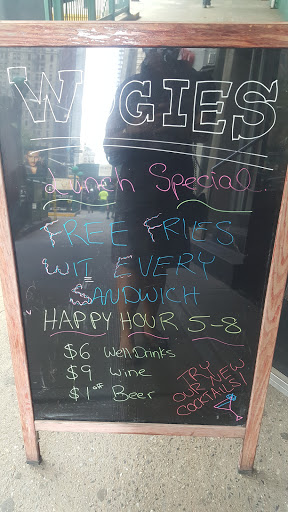 W GIES
Lunch Special
FREE FRIES
WIT EVERY
SANDWICH
HAPPY HOUR 5-8
$6 Well Drinks
$9 Wine
$1 off Beer
TRY
OUR NEW
COCKTAILS!